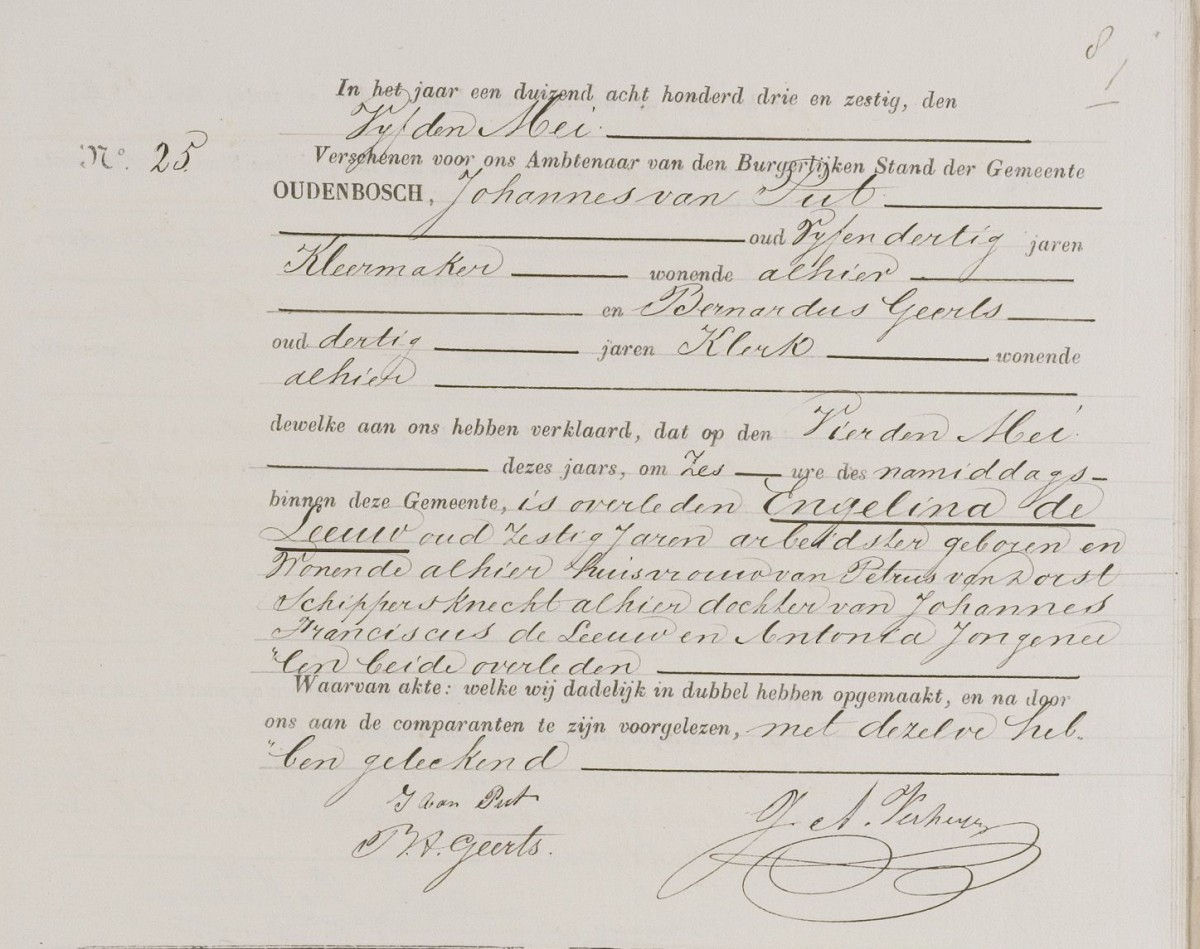 8
1
In het jaar een duizend acht honderd drie en zestig, den
Vyfden Mei
No. 25
Verschenen voor ons Ambtenaar van den Burgerlijken Stand der Gemeente
OUDENBOSCH, Johannes van Put
oud Vyfendertig jaren
Kleermaker wonende alhier
en Bernardus Geerts
oud dertig jaren Klerk wonende
alhier
dewelke aan ons hebben verklaard, dat op den Vierden Mei
dezes jaars, om Zes ure des namiddags
binnen deze Gemeente, is overleden Engelina de
Leeuw oud Zestig Jaren arbeidster geboren en
Wonende alhier huisvrouw van Petrus van Dorst
Schippersknecht alhier dochter van Johannes
Franciscus de Leeuw en Antonia Jongenee
"len beide overleden
Waarvan akte: welke wij dadelijk in dubbel hebben opgemaakt, en na door
ons aan de comparanten te zijn voorgelezen, met dezelve heb-
"ben geteekend
J van Put
B.A. Geerts.
J. A. Verheyen